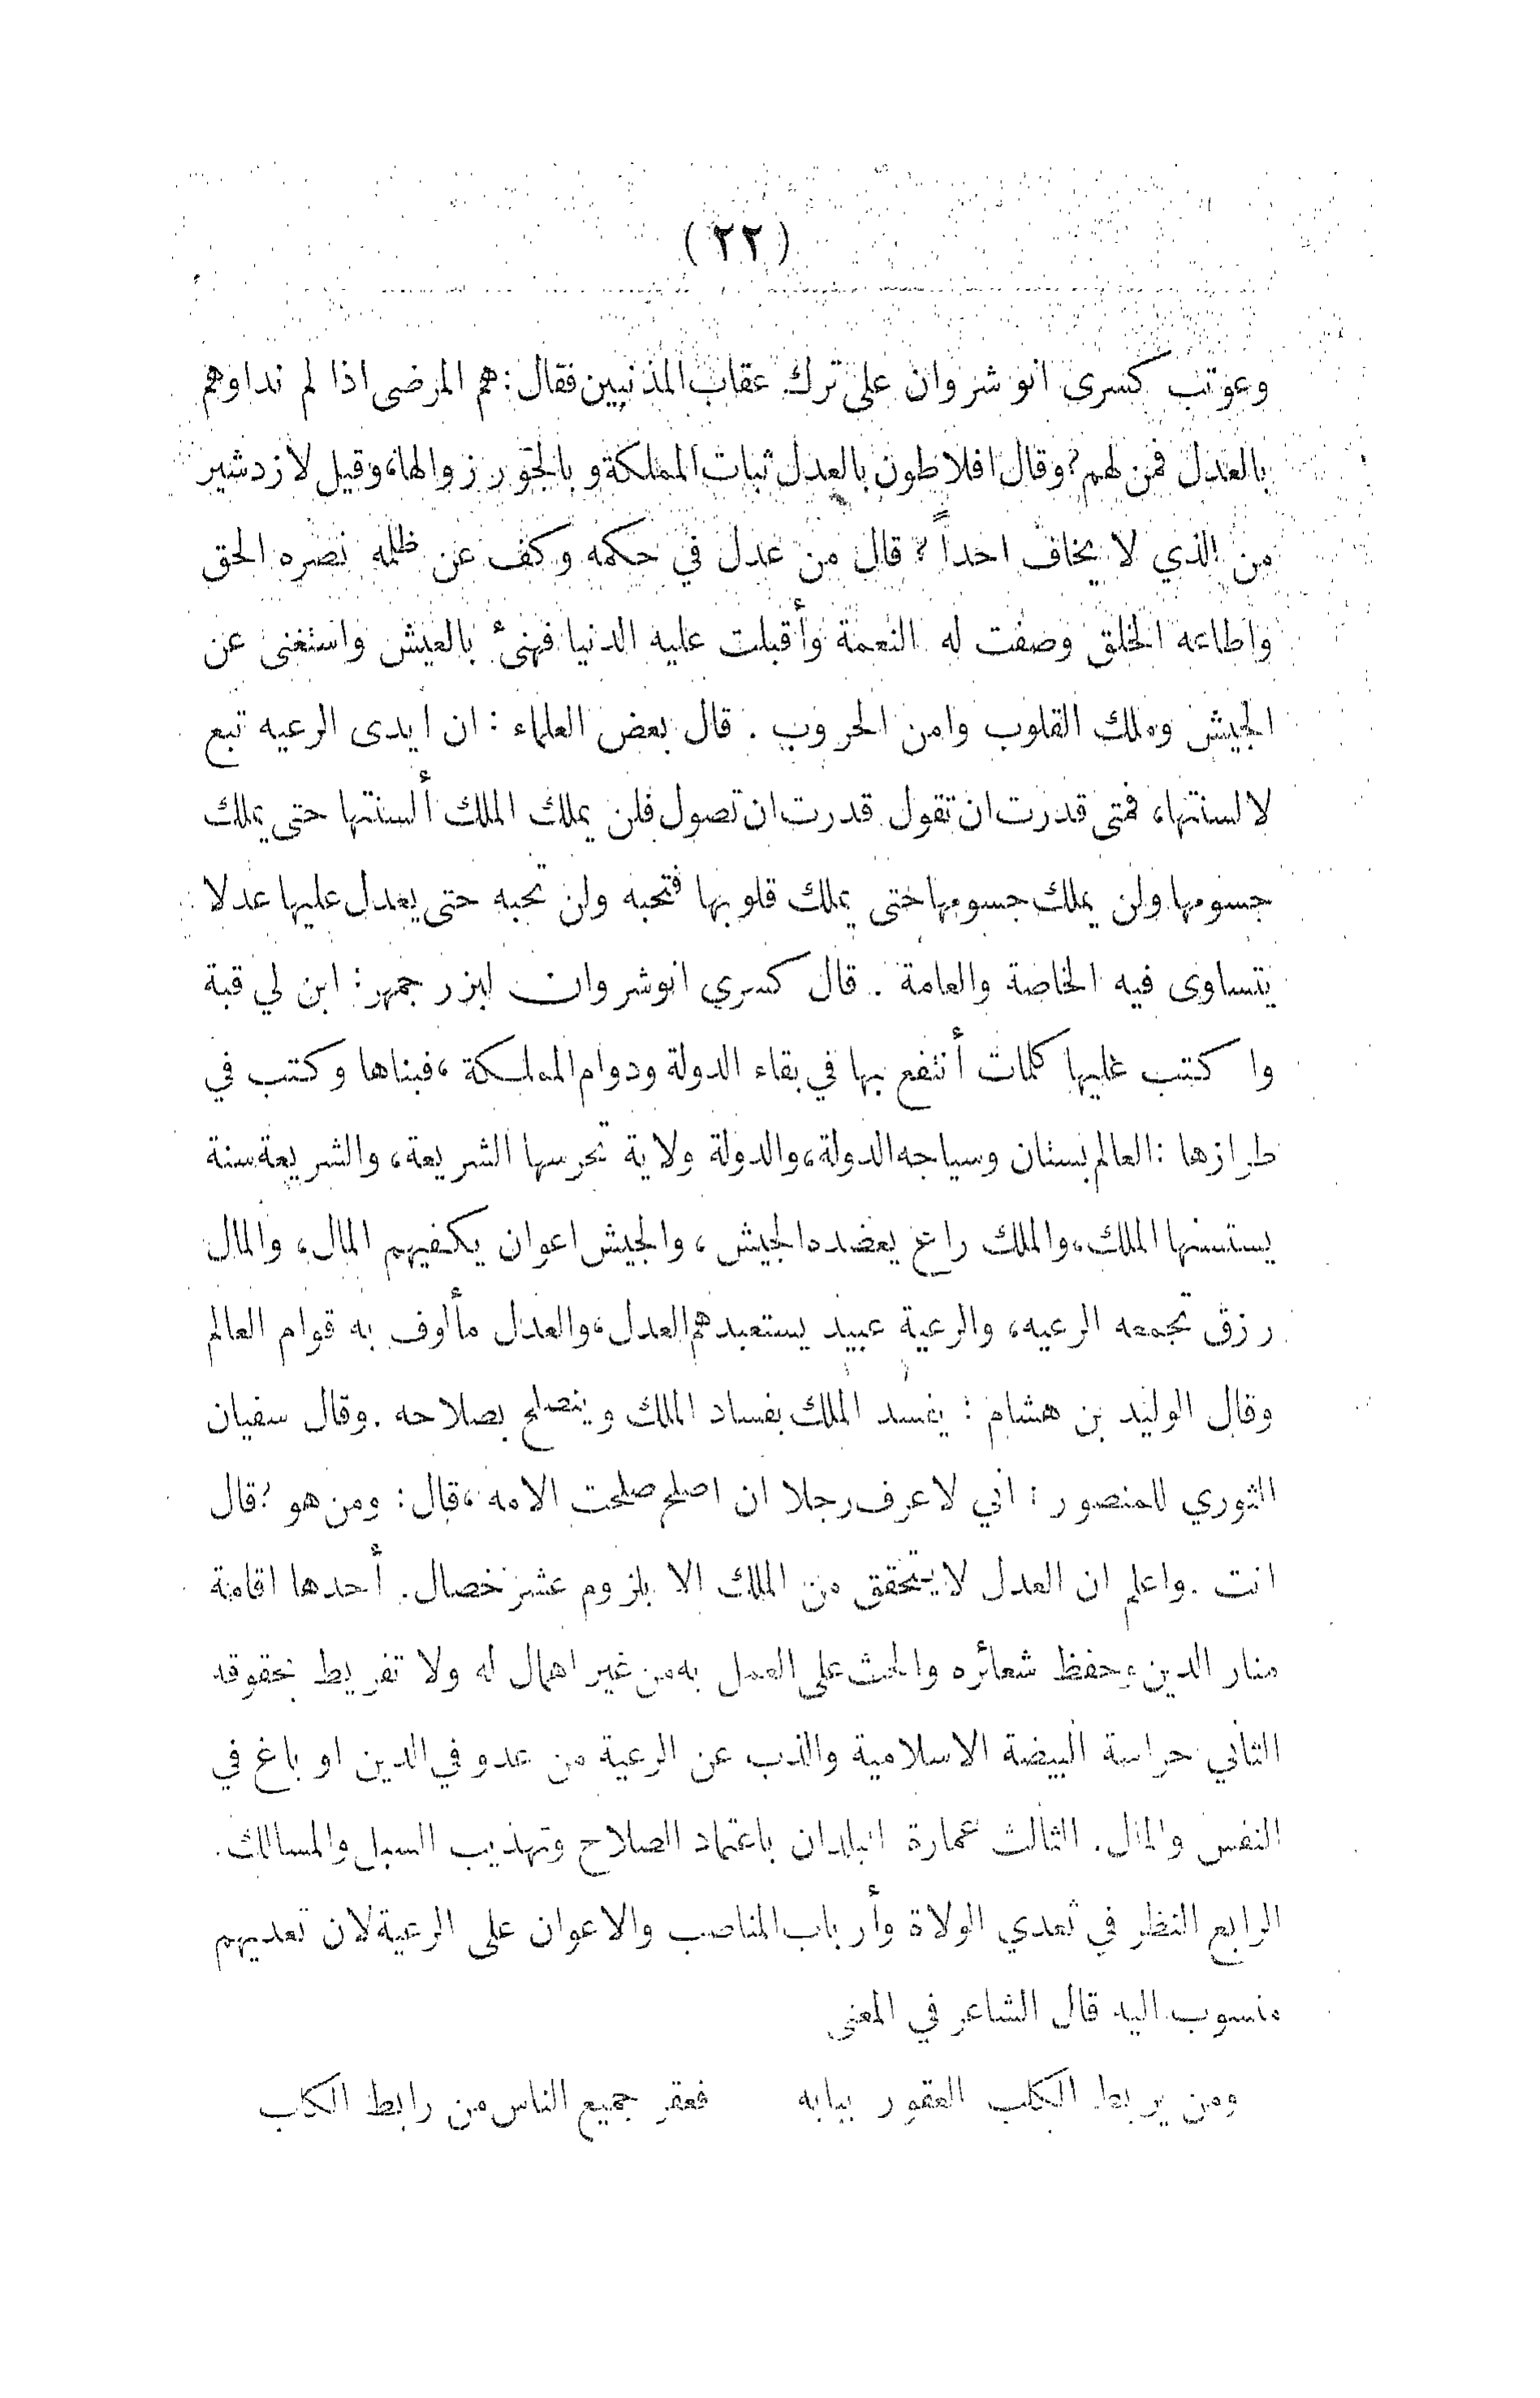 (٢٢)
وعوتب كسرى انو شروان على ترك عقاب المذنبين فقال: هم المرضى اذا لم نداوهم
بالعدل فمن لهم؟ وقال افلاطون بالعدل ثبات المملكة وبالجور زوالها، وقيل لازدشير
من الذي لا يخاف احداً؟ قال من عدل في حكمه وكف عن ظلمه نصره الحق
واطاعه الخلق وصفت له النعمة وأقبلت عليه الدنيا فهنئ بالعيش واستغنى عن
الجيش وملك القلوب وامن الحروب . قال بعض العلماء : ان ايدى الرعيه تبع
لالسنتها، فمتى قدرت ان تقول قدرت ان تصول فلن يملك الملك ألسنتها حتى يملك
جسومها ولن يملك جسومها حتى يملك قلوبها فتحبه ولن تحبه حتى يعدل عليها عدلا
يتساوى فيه الخاصة والعامة . قال كسري انوشروان لبزر جمهر: ابن لي قبة
واكتب عليها كلمات أنتفع بها في بقاء الدولة ودوام المملكة، فبناها وكتب في
طرازها : العالم بستان وسياجه الدولة، والدولة ولاية تحرسها الشريعة، والشريعة سنة
يستسنها الملك، والملك راع يعضده الجيش، والجيش اعوان يكفيهم المال، والمال
رزق تجمعه الرعيه، والرعية عبيد يستعبدهم العدل، والعدل مألوف به قوام العالم
وقال الوليد بن هشام : يفسد الملك بفساد الملك وينصلح بصلاحه . وقال سفيان
الثوري للمنصور : اني لاعرف رجلا ان اصلح صلحت الامه، قال: ومن هو؟ قال
انت . واعلم ان العدل لا يتحقق من الملك الا بلزوم عشر خصال. أحدها اقامة
منار الدين وحفظ شعائره والحث على العمل به من غير اهمال له ولا تفريط بحقوقه
الثاني حراسة البيضة الاسلامية والذب عن الرعية من عدو في الدين او باغ في
النفس والمال. الثالث عمارة البلدان باعتماد الصلاح وتهذيب السبل والمسالك.
الرابع النظر في تعدي الولاة وأرباب المناصب والاعوان على الرعية لان تعديهم
منسوب اليه قال الشاعر في المعنى
ومن يربط الكلب العقور ببابه     فعقر جميع الناس من رابط الكلب